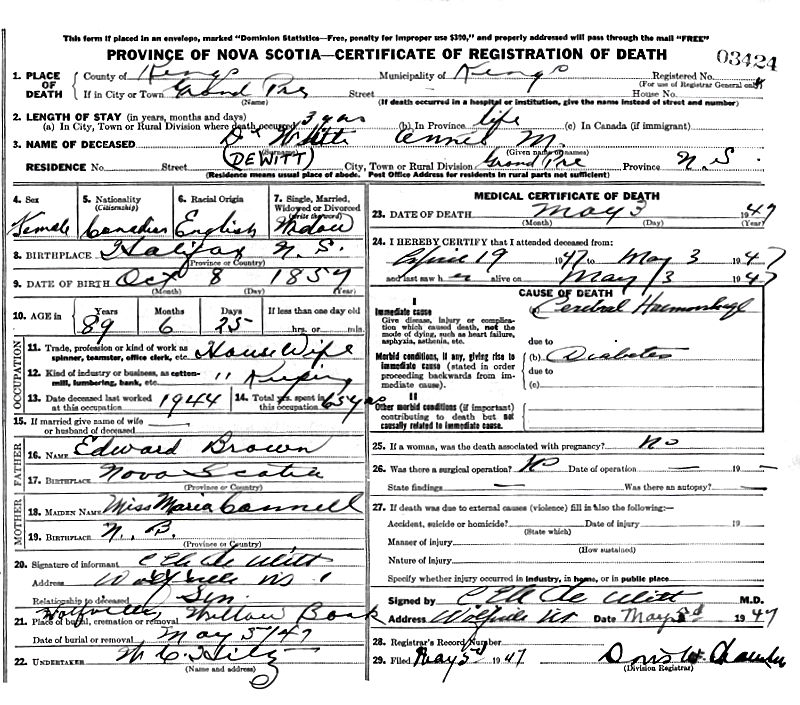 This form if placed in an envelope, marked "Dominion Statistics—Free, penalty for improper use $300," and properly addressed will pass through the mail "FREE"
PROVINCE OF NOVA SCOTIA—CERTIFICATE OF REGISTRATION OF DEATH
03424
1. PLACE OF DEATH County of Kings Municipality of Kings Registered No.
(For use of Registrar General only)
If in City or Town Grand Pre Street House No.
(Name) (If death occurred in a hospital or institution, give the name instead of street and number)
2. LENGTH OF STAY (in years, months and days)
(a) In City, Town or Rural Division where death occurred 3 yrs (b) In Province life (c) In Canada (if immigrant)
3. NAME OF DECEASED De Witt Annie M.
(Surname) (Given name or names)
(DEWITT)
RESIDENCE No. Street City, Town or Rural Division Grand Pre Province N.S.
(Residence means usual place of abode. Post Office Address for residents in rural parts not sufficient)
4. Sex Female
5. Nationality (Citizenship) Canadian
6. Racial Origin English
7. Single, Married, Widowed or Divorced (write the word) Widow
8. BIRTHPLACE Halifax N.S.
(Province or Country)
9. DATE OF BIRTH Oct 8 1857
(Month) (Day) (Year)
10. AGE in Years 89 Months 6 Days 25 If less than one day old
hrs. or min.
OCCUPATION
11. Trade, profession or kind of work as spinner, teamster, office clerk, etc. House Wife
12. Kind of industry or business, as cotton-mill, lumbering, bank, etc. " Keeping
13. Date deceased last worked at this occupation 1944
14. Total yrs. spent in this occupation 65 yrs
15. If married give name of wife or husband of deceased
FATHER
16. NAME Edward Brown
17. BIRTHPLACE Nova Scotia
(Province or Country)
MOTHER
18. MAIDEN NAME Miss Maria Connell
19. BIRTHPLACE N.B.
(Province or Country)
20. Signature of informant De Witt
Address Wolfville NS
Relationship to deceased Son
21. Place of burial, cremation or removal Wolfville Willow Bank
Date of burial or removal May 5/47
22. UNDERTAKER
(Name and address)
MEDICAL CERTIFICATE OF DEATH
23. DATE OF DEATH May 3 1947
(Month) (Day) (Year)
24. I HEREBY CERTIFY that I attended deceased from:
April 19 1947 to May 3 1947
and last saw h er alive on May 3 1947
CAUSE OF DEATH
I
Immediate cause
Give disease, injury or complication which caused death, not the mode of dying, such as heart failure, asphyxia, asthenia, etc.
(a) Cerebral Haemorrhage
due to
Morbid conditions, if any, giving rise to immediate cause (stated in order proceeding backwards from immediate cause)
(b) Diabetes
due to
(c)
II
Other morbid conditions (if important) contributing to death but not causally related to immediate cause.
25. If a woman, was the death associated with pregnancy? No
26. Was there a surgical operation? No Date of operation — 19 —
State findings — Was there an autopsy? —
27. If death was due to external causes (violence) fill in also the following:—
Accident, suicide or homicide? Date of injury 19
(State which)
Manner of injury
(How sustained)
Nature of injury
Specify whether injury occurred in industry, in home, or in public place
Signed by De Witt M.D.
Address Wolfville NS Date May 3d 1947
28. Registrar's Record Number
29. Filed May 5d 1947
(Division Registrar)